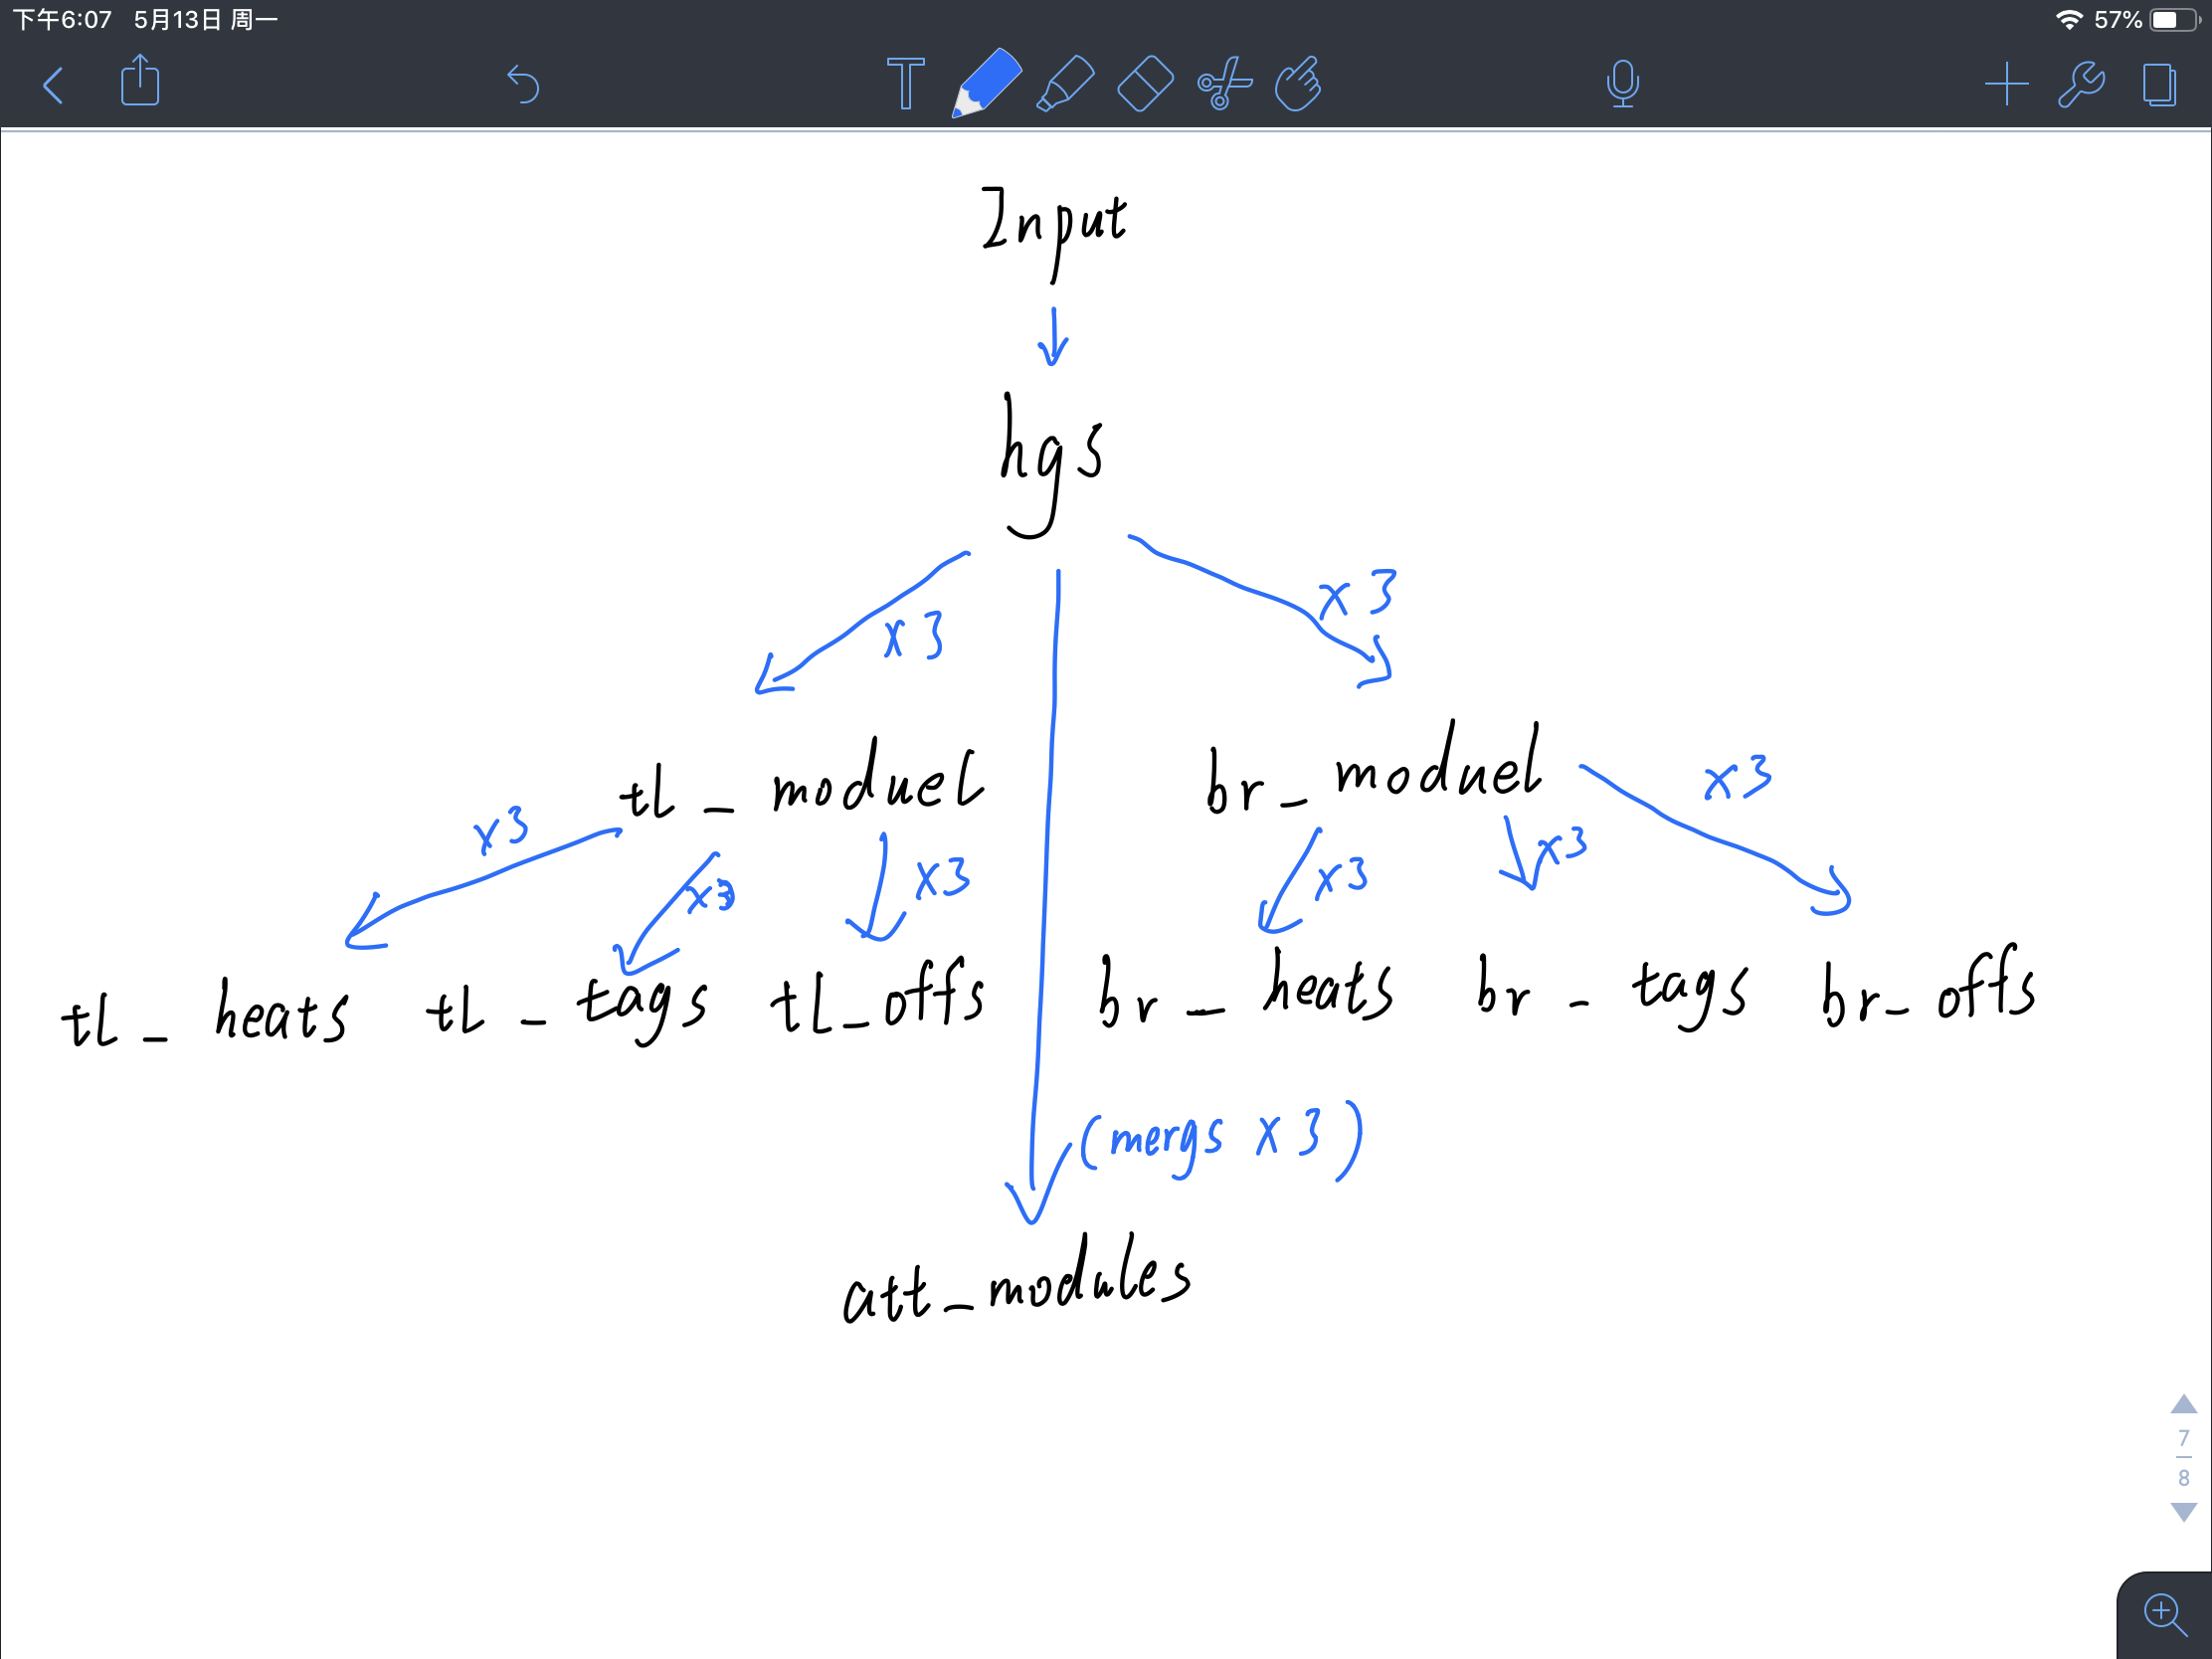 下午6:07 5月13日 周一 57%
Input
hgs
x3 x3
tl_moduel br_moduel
x3 x3 x3 x3 x3 x3
tl_heats tl_tags tl_offs br_heats br_tags br_offs
(mergs x3)
att_modules
7
8